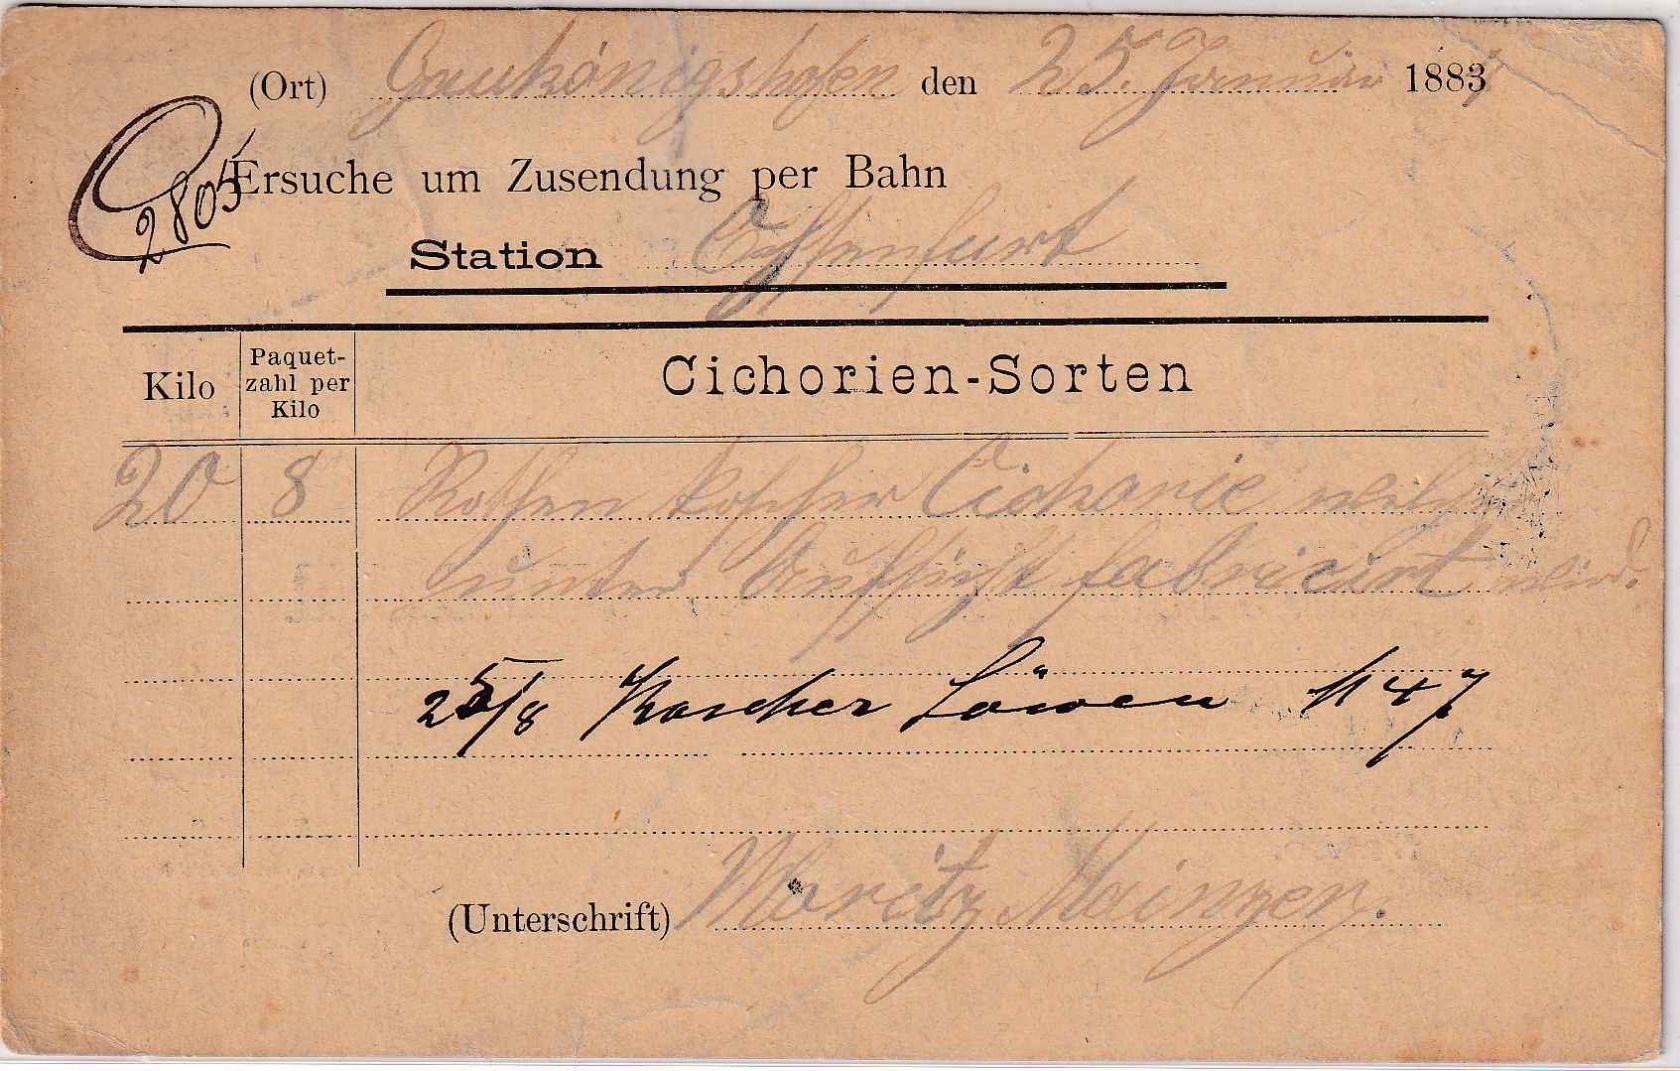 (Ort) Gaukönigshofen den 25. Januar 1883
2805
Ersuche um Zusendung per Bahn
Station Ochsenfurt
Kilo
Paquet-
zahl per
Kilo
Cichorien-Sorten
20 8 Rothen koscher Cichorie welche
unter Aufsicht fabricirt wird.
25/8 Koscher Löwen M 47
(Unterschrift) Moritz Mainzer.